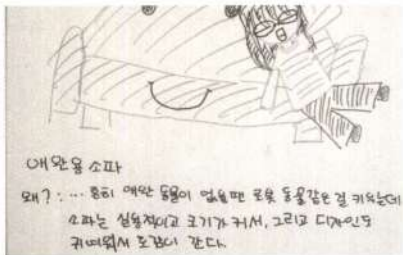 애완용 소파
왜? : ... 흔히 애완 동물이 없을땐 로봇 동물같은 걸 키우는데
소파는 실용적이고 크기가 커서, 그리고 디자인도
귀여워서 도감이 간다.